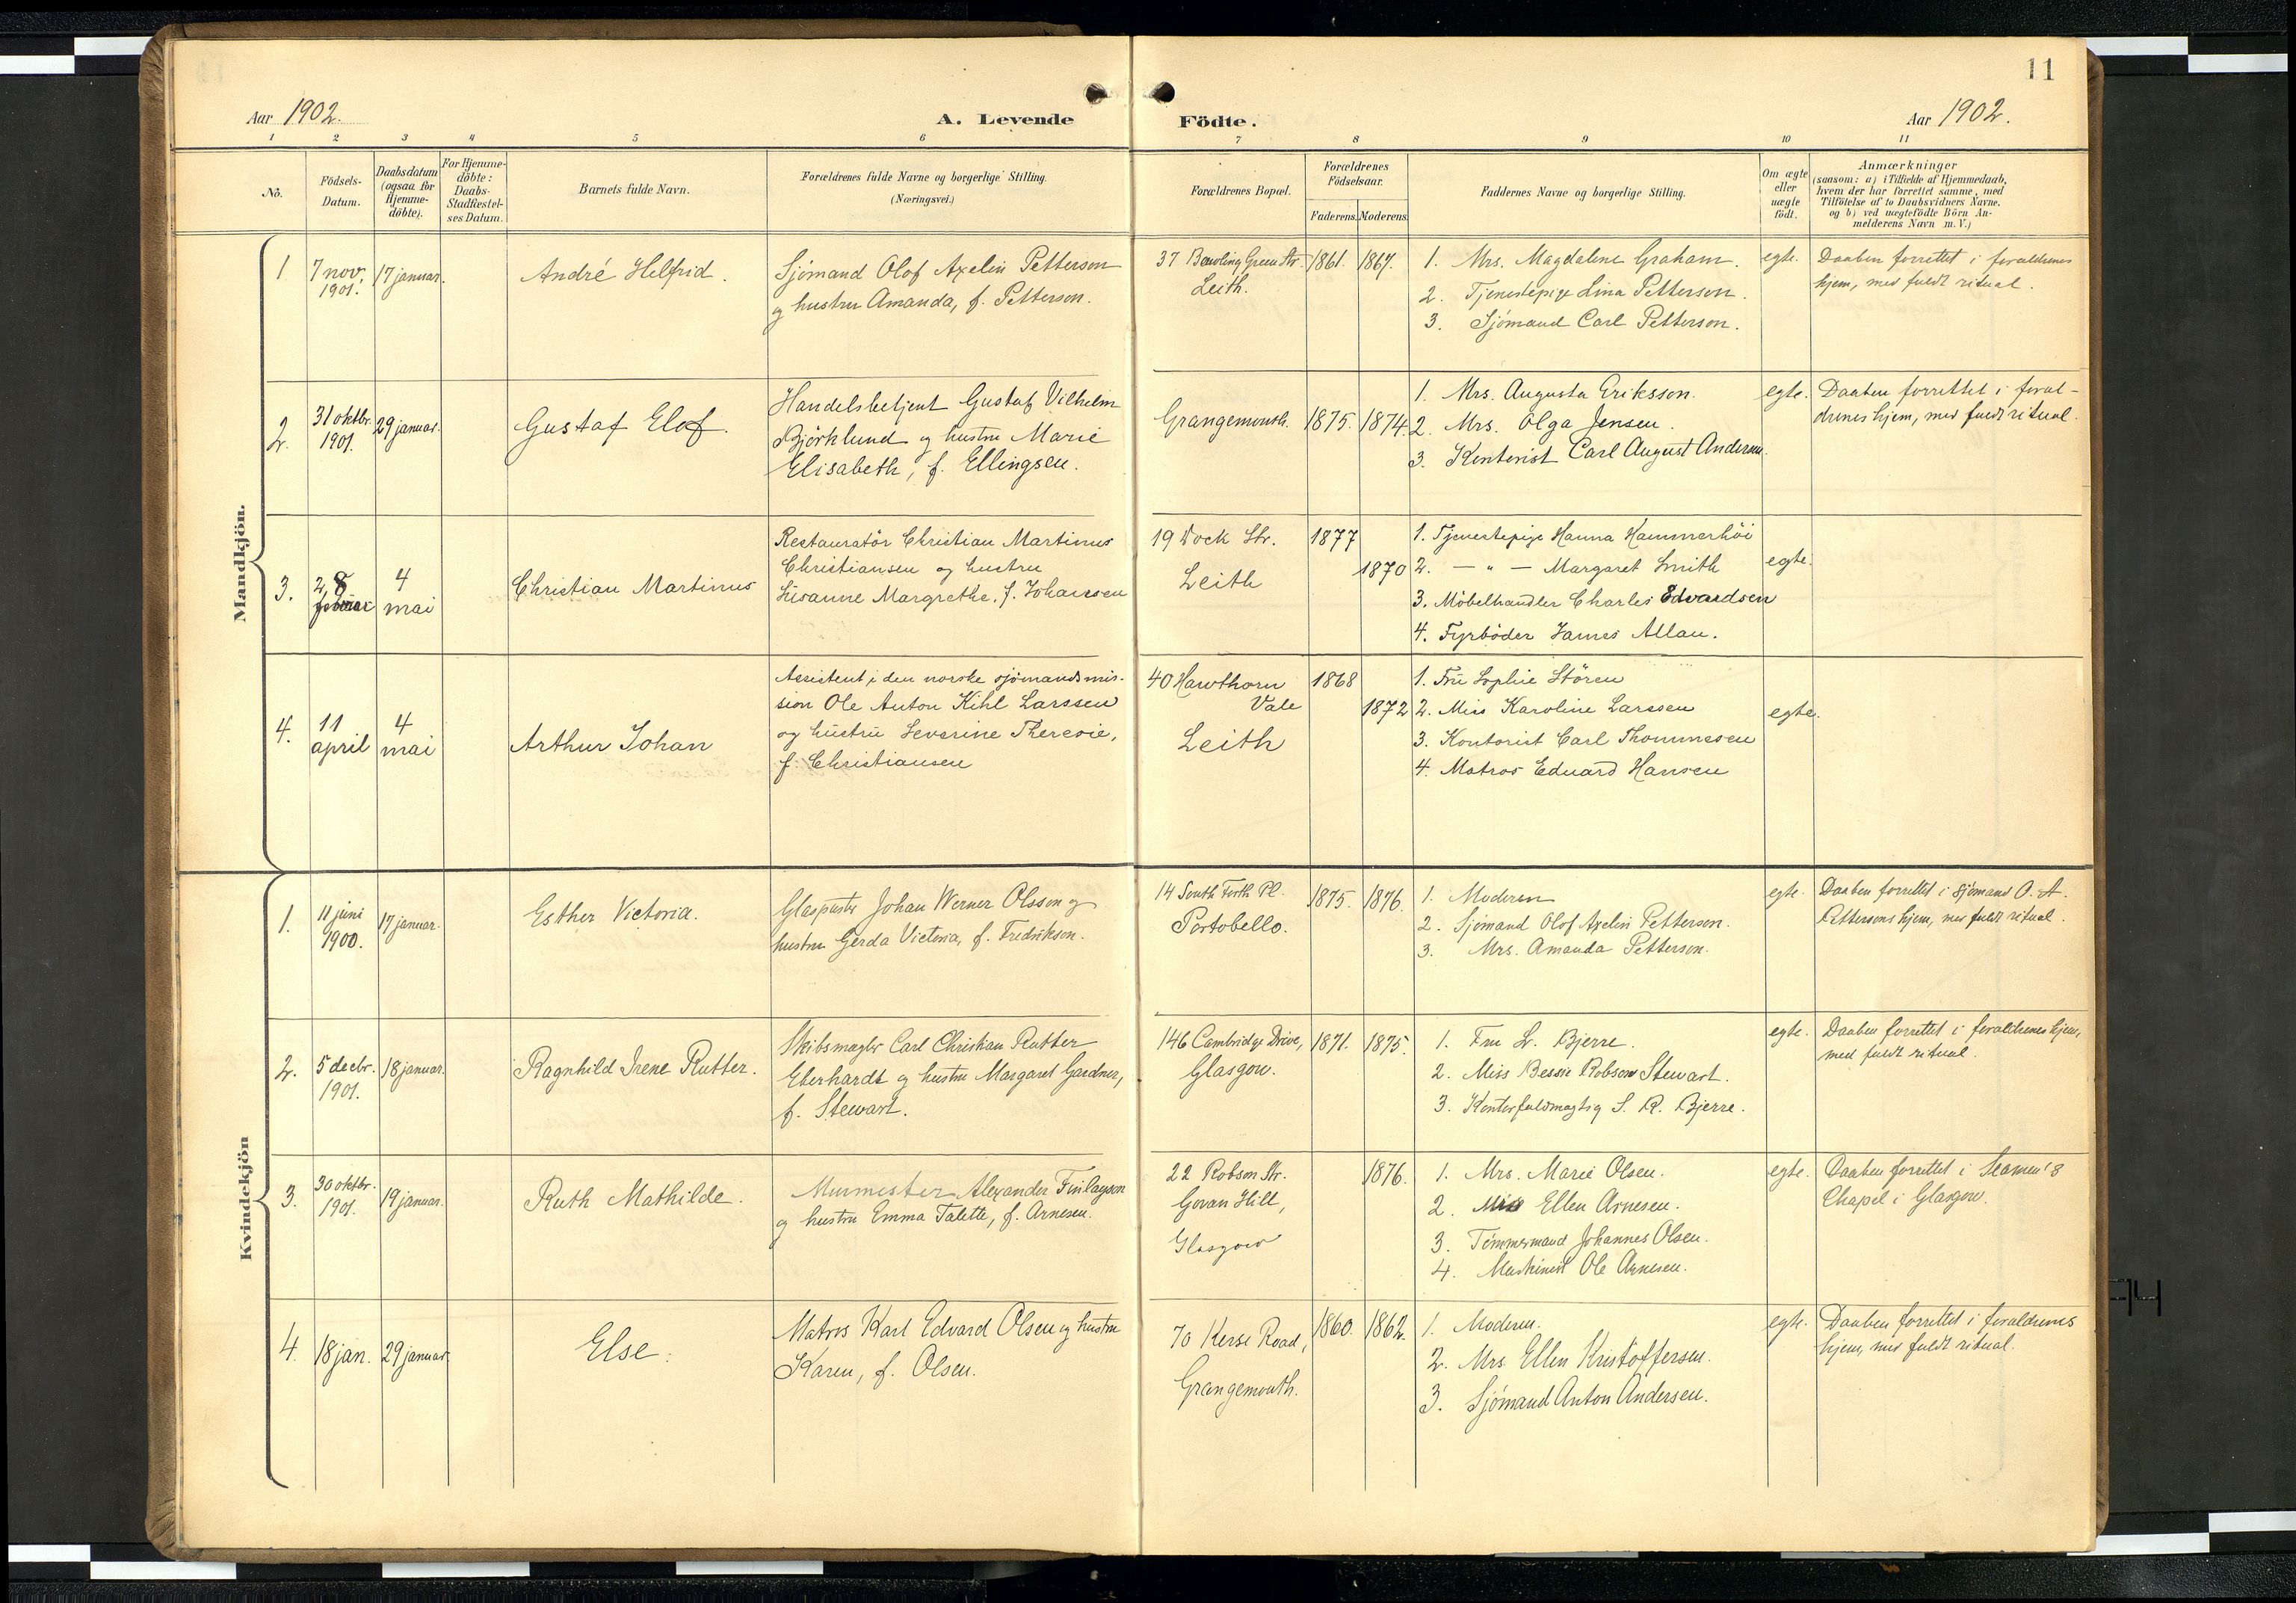 11
Aar 1902.
A. Levende Födte.
Aar 1902.
1 2 3 4 5 6 7 8 9 10 11
No.
Födsels-
Datum.
Daabsdatum
(ogsaa for
Hjemme-
döbte).
For Hjemme-
döbte:
Daabs-
Stadfæstel-
ses Datum.
Barnets fulde Navn.
Forældrenes fulde Navne og borgerlige Stilling.
(Næringsvei.)
Forældrenes Bopæl.
Forældrenes
Födselsaar.
Faderens. Moderens.
Faddernes Navne og borgerlige Stilling.
Om ægte
eller
uægte
født.
Anmærkninger
(saasom: a) i Tilfælde af Hjemmedaab,
hvem der har forrettet samme, med
Tilföielse af to Daabsvidners Navne.
og b) ved uægtefödte Börn An-
melderens Navn m. V.)
Mandkjön.
1
7 nov.
1901.
17 januar.
André Helfrid.
Sjómand Olof Axelin Petterson
og hustru Amanda, f. Petterson.
37 Bowling Green Str.
Leith.
1861. 1867.
1. Mrs. Magdalene Graham.
2. Tjenestepige Lina Petterson.
3. Sjómand Carl Petterson.
egte.
Daaben forrettet i forældrenes
hjem, med fuldt ritual.
2.
31 oktbr.
1901.
29 januar.
Gustaf Elof.
Handelsbetjent Gustaf Vilhelm
Björklund og hustru Marie
Elisabeth, f. Ellingsen.
Grangemouth.
1875. 1874.
1. Mrs. Augusta Eriksson.
2. Mrs. Olga Jensen.
3. Kontorist Carl August Andersen.
egte.
Daaben forrettet i foræl-
drenes hjem, med fuldt ritual.
3.
28
februar
4
mai
Christian Martinus
Restauratör Christian Martinus
Christiansen og hustru
Susanne Margrethe, f. Johansen
19 Dock Str.
Leith
1877
1870
1. Tjenestepige Hanna Hammerhöi
2. — " — Margaret Smith
3. Möbelhandler Charles Edvardsen
4. Fyrböder James Allan.
egte.
4.
11
april
4
mai
Arthur Johan
Assistent i den norske sjömandsmis-
sion Ole Anton Kihl Larssen
og hustru Severine Theresie,
f. Christiansen
40 Hawthorn
Vale
Leith
1868
1872
1. Fru Sophie Stören
2. Miss Karoline Larssen
3. Kontorist Carl Thommesen
4. Matros Eduard Hansen
egte.
Kvindekjön
1.
11 juni
1900.
17 januar.
Esther Victoria.
Glaspuster Johan Werner Olsson og
hustru Gerda Victoria, f. Fredrikson.
14 South Forth Pl.
Portobello.
1875. 1876.
1. Moderen
2. Sjómand Olof Axelin Petterson.
3. Mrs. Amanda Petterson.
egte.
Daaben forrettet i sjömand O. A.
Pettersons hjem, med fuldt ritual.
2.
5 decbr.
1901.
18 januar.
Ragnhild Irene Rutter.
Skibsmægler Carl Christian Rutter
Eberhardt og hustru Margaret Gardner,
f. Stewart.
146 Cambridge Drive,
Glasgow.
1871. 1875.
1. Fru L. Bjerre.
2. Miss Bessie Robson Stewart.
3. Kontorfuldmægtig S. R. Bjerre.
egte.
Daaben forrettet i forældrenes hjem,
med fuldt ritual.
3.
30 oktbr.
1901.
19 januar.
Ruth Mathilde.
Murmester Alexander Finlayson
og hustru Emma Talette, f. Arnesen.
22 Robson Str.
Govan Hill,
Glasgow
1876.
1. Mrs. Marie Olsen.
2. Miss Ellen Arnesen.
3. Tömmermand Johannes Olsen.
4. Maskinist Ole Arnesen.
egte.
Daaben forrettet i Seamen's
Chapel i Glasgow.
4.
18 jan.
29 januar
Else.
Matros Karl Edvard Olsen og hustru
Karen, f. Olsen.
70 Kerse Road,
Grangemouth.
1860. 1862.
1. Moderen.
2. Mrs. Ellen Kristoffersen.
3. Sjómand Anton Andersen.
egte.
Daaben forrettet i forældrenes
hjem, med fuldt ritual.